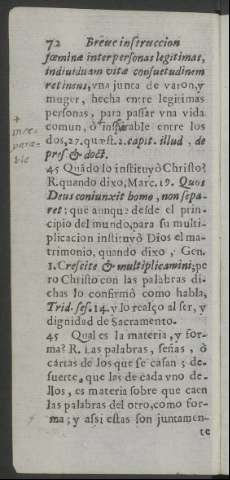 72 Breue instruccion
fœminæ inter personas legitimas,
indiuiduam vitæ consuetudinem
retinens, vna junta de varon, y
muger, hecha entre legitimas
personas, para passar vna vida
comun, ò inseparable entre los
dos, 27. quæst. 2. capit. illud, de
præs. & doct.
+
inse=
para=
ble
45 Quãdo lo instituyò Christo?
R. quando dixo, Marc. 19. Quos
Deus coniunxit homo, non sepa-
ret: que aunque desde el prin-
cipio del mundo, para su multi-
plicacion instituyò Dios el ma-
trimonio, quando dixo, Gen.
1. Crescite & multiplicamini; pe
ro Christo con las palabras di-
chas lo confirmò como habla,
Trid. ses. 14. y lo realço al ser, y
dignidad de Sacramento.
45 Qual es la materia, y for-
ma? R. Las palabras, señas, ò
cartas de los que se casan; de-
suerte, que las de cada vno de-
llos, es materia sobre que caen
las palabras del otro, como for-
ma; y assi estas son juntamen-
te